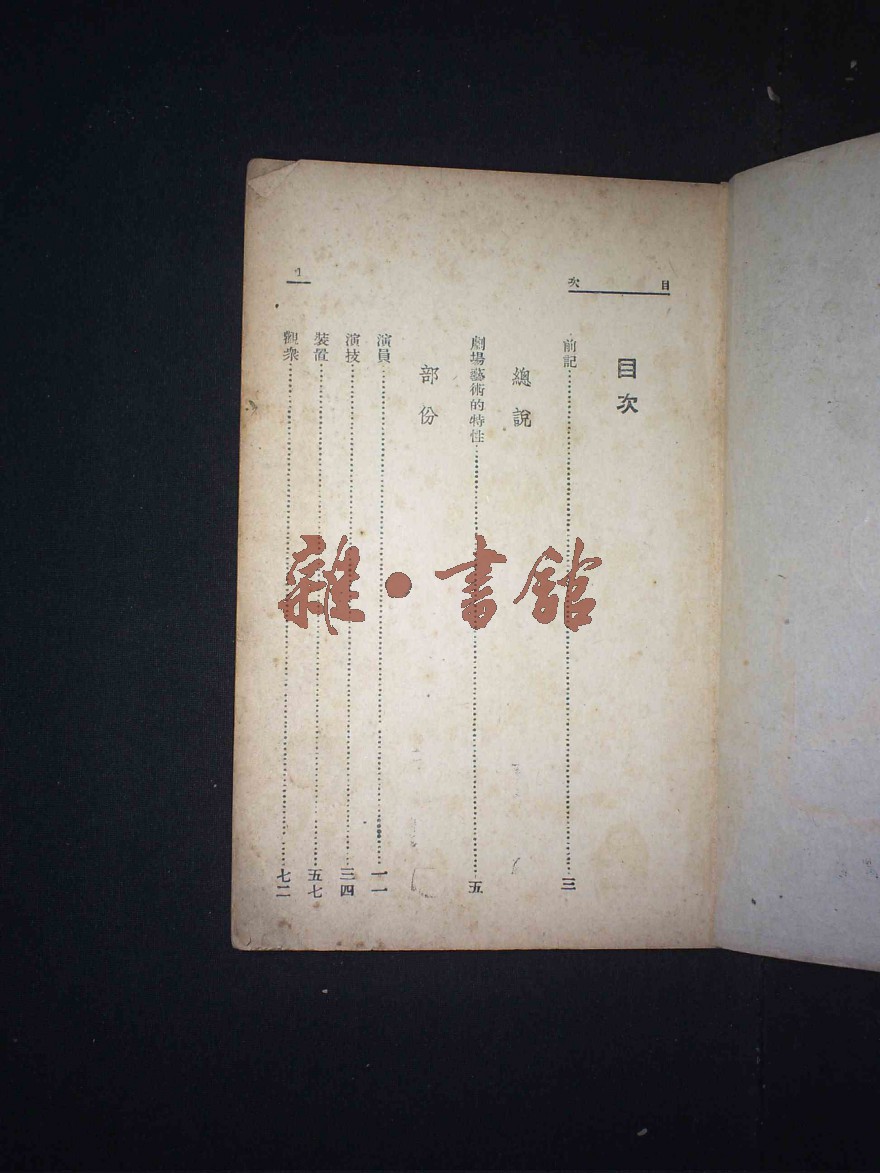 目次
1
目次
前記…………三
總說
劇場藝術的特性…………五
部份
演員…………一一
演技…………三四
裝置…………五七
觀衆…………七二
雜·書館